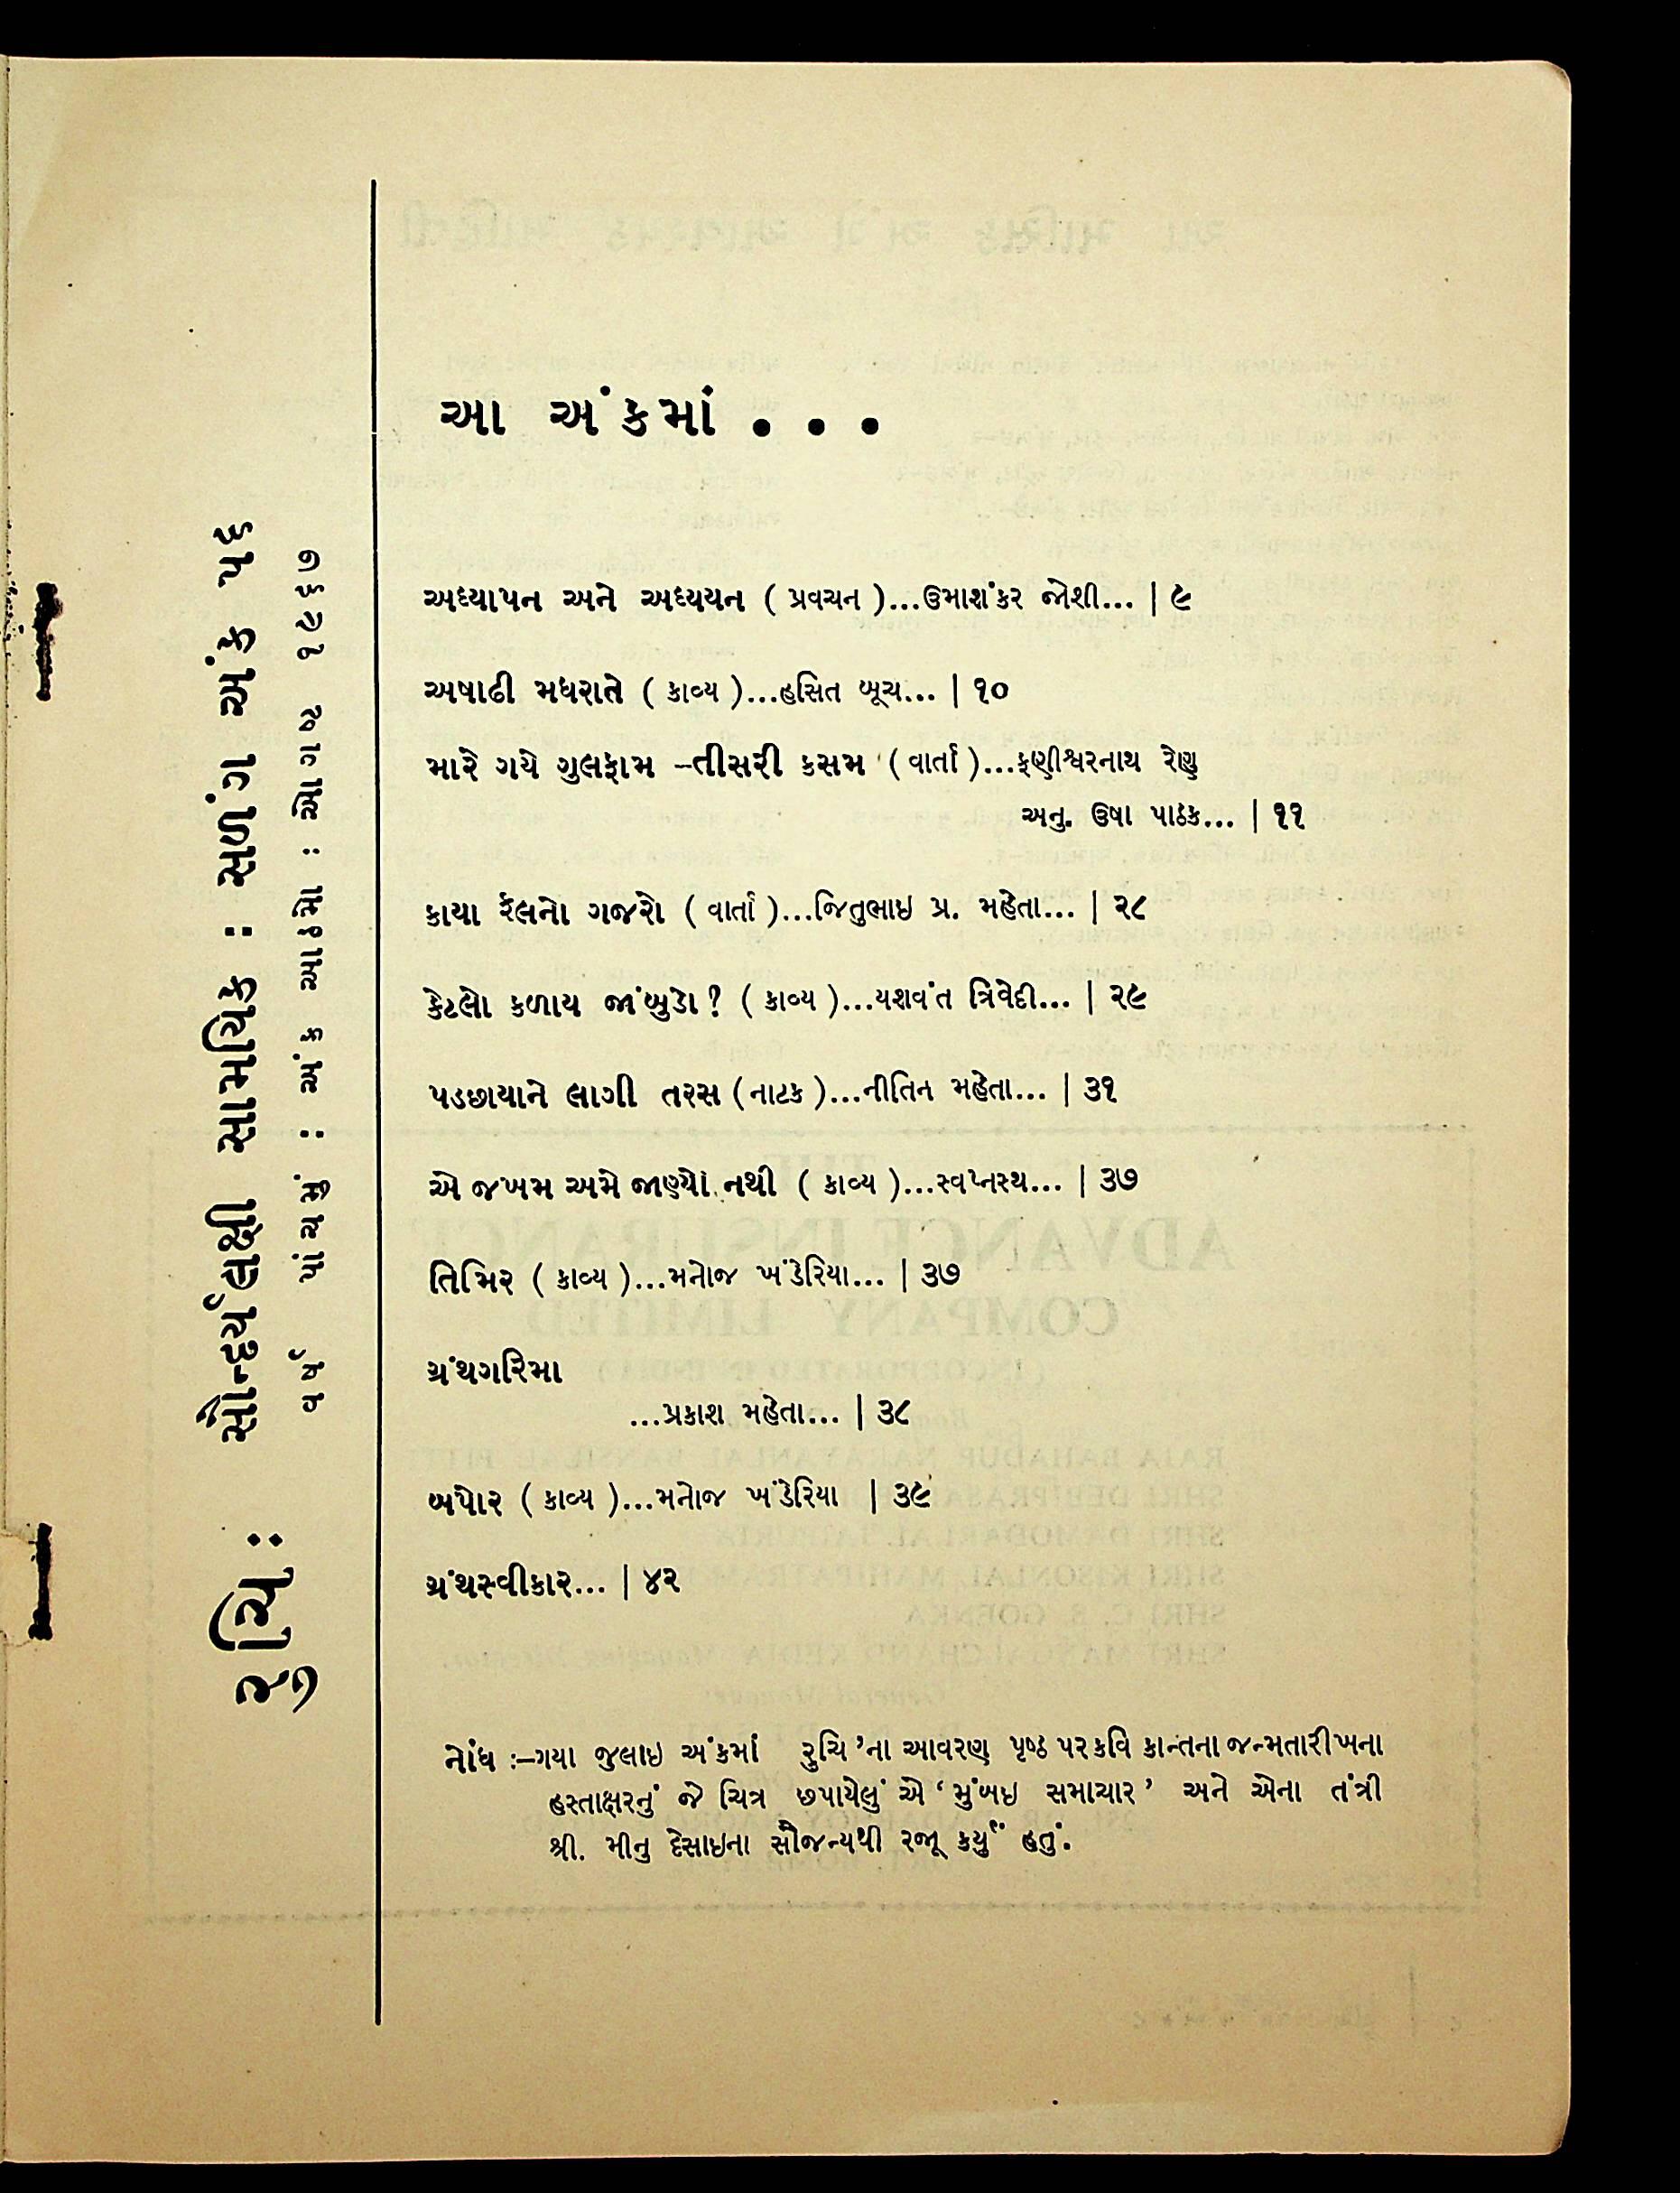 રુચિ : સૌન્દર્યલક્ષી સામયિક : સળંગ અંક ૫૬
વર્ષ પાંચમું : અંક આઠમો : ઓગષ્ટ ૧૯૬૭
આ અંકમાં . . .
અધ્યાપન અને અધ્યયન ( પ્રવચન )...ઉમાશંકર જોશી... | ૯
અષાઢી મધરાતે ( કાવ્ય )...હસિત બૂચ... | ૧૦
મારે ગયે ગુલફામ –તીસરી કસમ ( વાર્તા )...ફણીશ્વરનાથ રેણુ
અનુ. ઉષા પાઠક... | ૧૧
કાયા ફૅલનો ગજરો ( વાર્તા )...જિતુભાઇ પ્ર. મહેતા... | ૨૮
કેટલો કળાય જાંબુડો ? ( કાવ્ય )...યશવંત ત્રિવેદી... | ૨૯
પડછાયાને લાગી તરસ ( નાટક )...નીતિન મહેતા... | ૩૧
એ જખમ અમે જાણ્યો નથી ( કાવ્ય )...સ્વપ્નસ્થ... | ૩૭
તિમિર ( કાવ્ય )...મનોજ ખંડેરિયા... | ૩૭
ગ્રંથગરિમા
...પ્રકાશ મહેતા... | ૩૮
બપોર ( કાવ્ય )...મનોજ ખંડેરિયા | ૩૯
ગ્રંથસ્વીકાર... | ૪૨
નોંધ :–ગયા જુલાઇ અંકમાં રુચિ ’ના આવરણ પૃષ્ઠ પર કવિ કાન્તના જન્મતારીખના
હસ્તાક્ષરનું જે ચિત્ર છપાયેલું એ ‘ મુંબઇ સમાચાર ’ અને એના તંત્રી
શ્રી. મીનુ દેસાઇના સૌજન્યથી રજૂ કર્યું હતું.